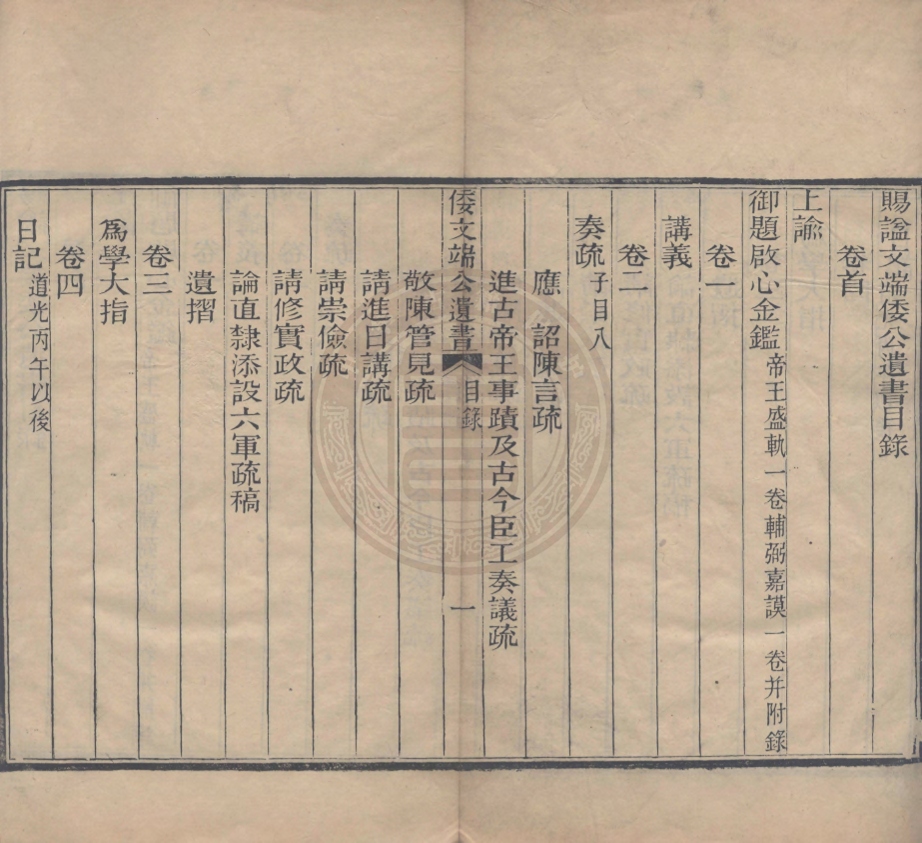 賜諡文端倭公遺書目錄
卷首
上諭
御題啟心金鑑帝王盛軌一卷輔弼嘉謨一卷并附錄
卷一
講義
卷二
奏疏子目八
應　詔陳言疏
進古帝王事蹟及古今臣工奏議疏
倭文端公遺書　目錄　一
敬陳管見疏
請進日講疏
請崇儉疏
請修實政疏
論直隸添設六軍疏稿
遺摺
卷三
爲學大指
卷四
日記道光丙午以後